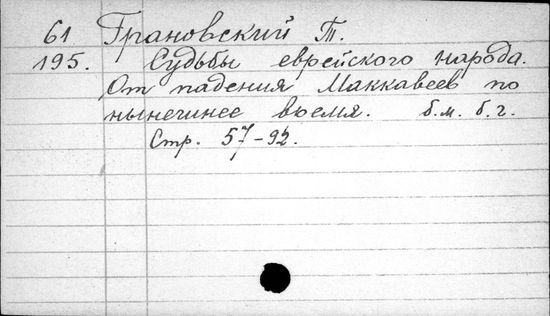 61 Грановский Т.
195. Судьбы еврейского народа.
От падения Маккавеев по
нынешнее время. б.м. б.г.
Стр. 57-92.